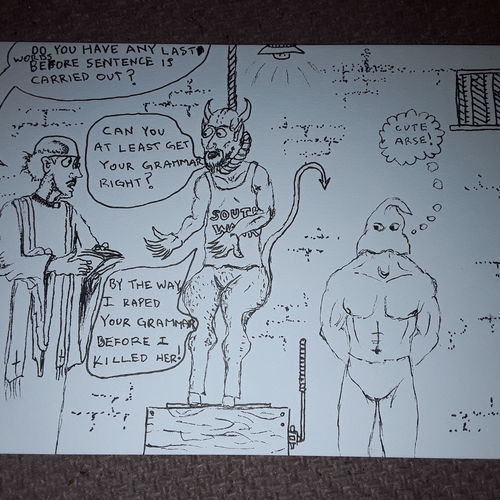 DO YOU HAVE ANY LAST
WORDS BEFORE SENTENCE IS
CARRIED OUT?
CAN YOU
AT LEAST GET
YOUR GRAMMAR
RIGHT?
CUTE
ARSE!
SOUTH
WARK
BY THE WAY
I RAPED
YOUR GRAMMAR
BEFORE I
KILLED HER.